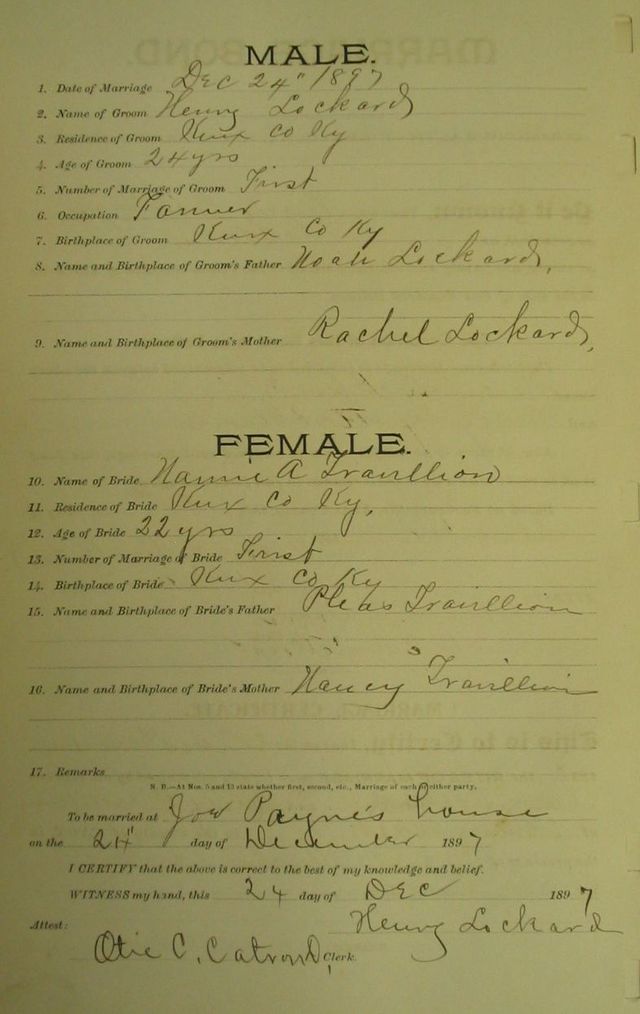 MALE.
1. Date of Marriage Dec 24" 1897
2. Name of Groom Henry Lockard
3. Residence of Groom Knox Co Ky
4. Age of Groom 24 yrs
5. Number of Marriage of Groom First
6. Occupation Farmer
7. Birthplace of Groom Knox Co Ky
8. Name and Birthplace of Groom's Father Noah Lockard,
9. Name and Birthplace of Groom's Mother Rachel Lockard,
FEMALE.
10. Name of Bride Nannie A Travillion
11. Residence of Bride Knox Co Ky,
12. Age of Bride 22 yrs
13. Number of Marriage of Bride First
14. Birthplace of Bride Knox Co Ky
15. Name and Birthplace of Bride's Father Pleas Travillion
16. Name and Birthplace of Bride's Mother Nancy Travillion
17. Remarks
N. B.—At Nos. 5 and 13 state whether first, second, etc., Marriage of each or either party.
To be married at Joe Payne's house
on the 24" day of December 1897
I CERTIFY that the above is correct to the best of my knowledge and belief.
WITNESS my hand, this 24 day of Dec 1897
Henry Lockard
Attest:
Otie C. Catron D Clerk.